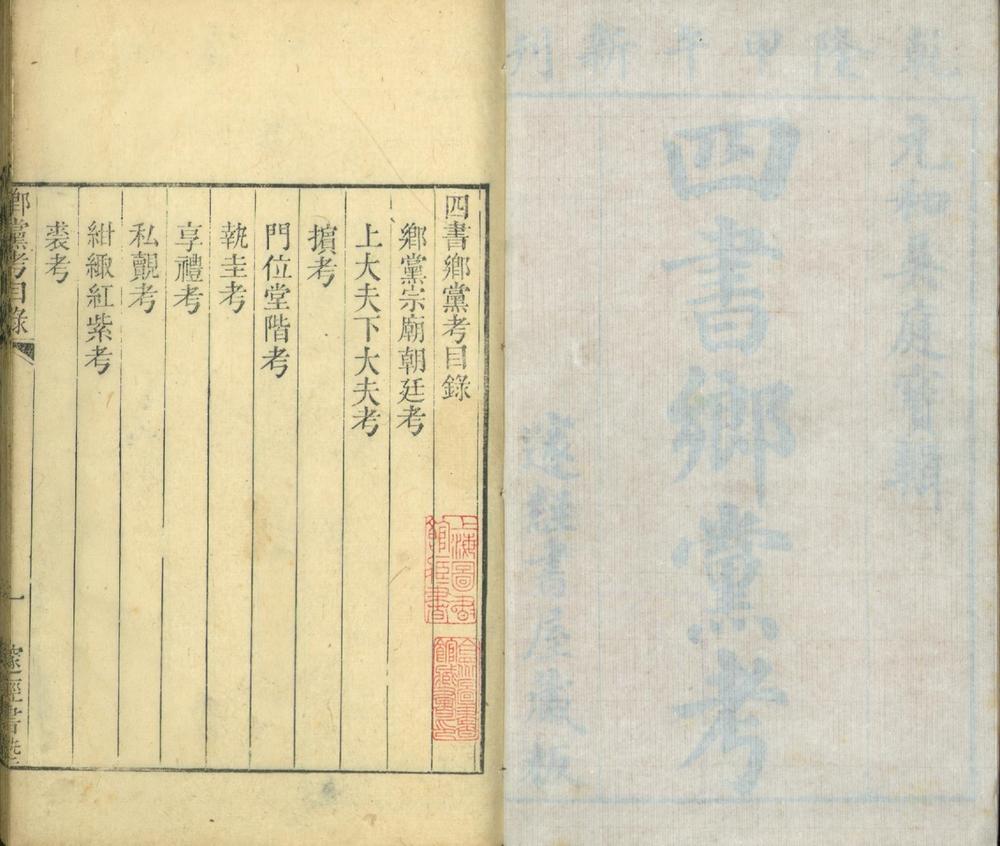 乾隆甲午新刊
四書鄉黨考
遂經書屋藏板
四書鄉黨考目錄
鄉黨宗廟朝廷考
上大夫下大夫考
擯考
門位堂階考
執圭考
享禮考
私覿考
紺緅紅紫考
裘考
鄉黨考目錄
一
上海圖書館藏書